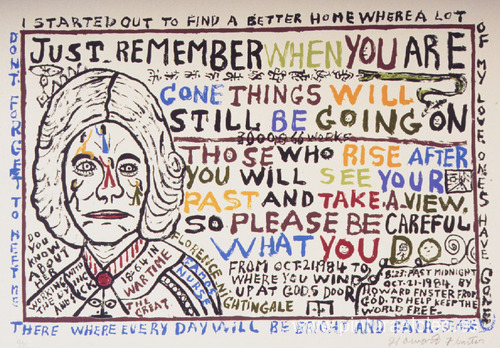 I STARTED OUT TO FIND A BETTER HOME WHERE A LOT
OF MY LOVE. ONES HAVE GONE
DONT FORGET TO MEET ME
THERE WHERE EVERY DAY WILL BE BRIGHT AND FAIR.
JUST. REMEMBER WHEN YOU ARE
GONE THINGS WILL
STILL BE GOING ON
3000 866 WORKS
THOSE WHO RISE AFTER
YOU WILL SEE YOUR
PAST AND TAKE A.VIEW.
SO PLEASE BE CAREFUL
WHAT YOU DO
FROM OCT.21-1984 TO
WHERE YOU WIND
UP AT GOD,S DOOR
8:23. PAST MIDNIGHT
OCT-21-1984. BY
HOWARD FNSTER FROM
GOD. TO HELP KEEP THE
WORLD FREE-
DO
YOU
KNOW
ABOUT
HER
WORKING AMID
THE
AND SICK
WAR TIME
THE GREAT.
FLORENCE NIGHTINGALE
NURSE